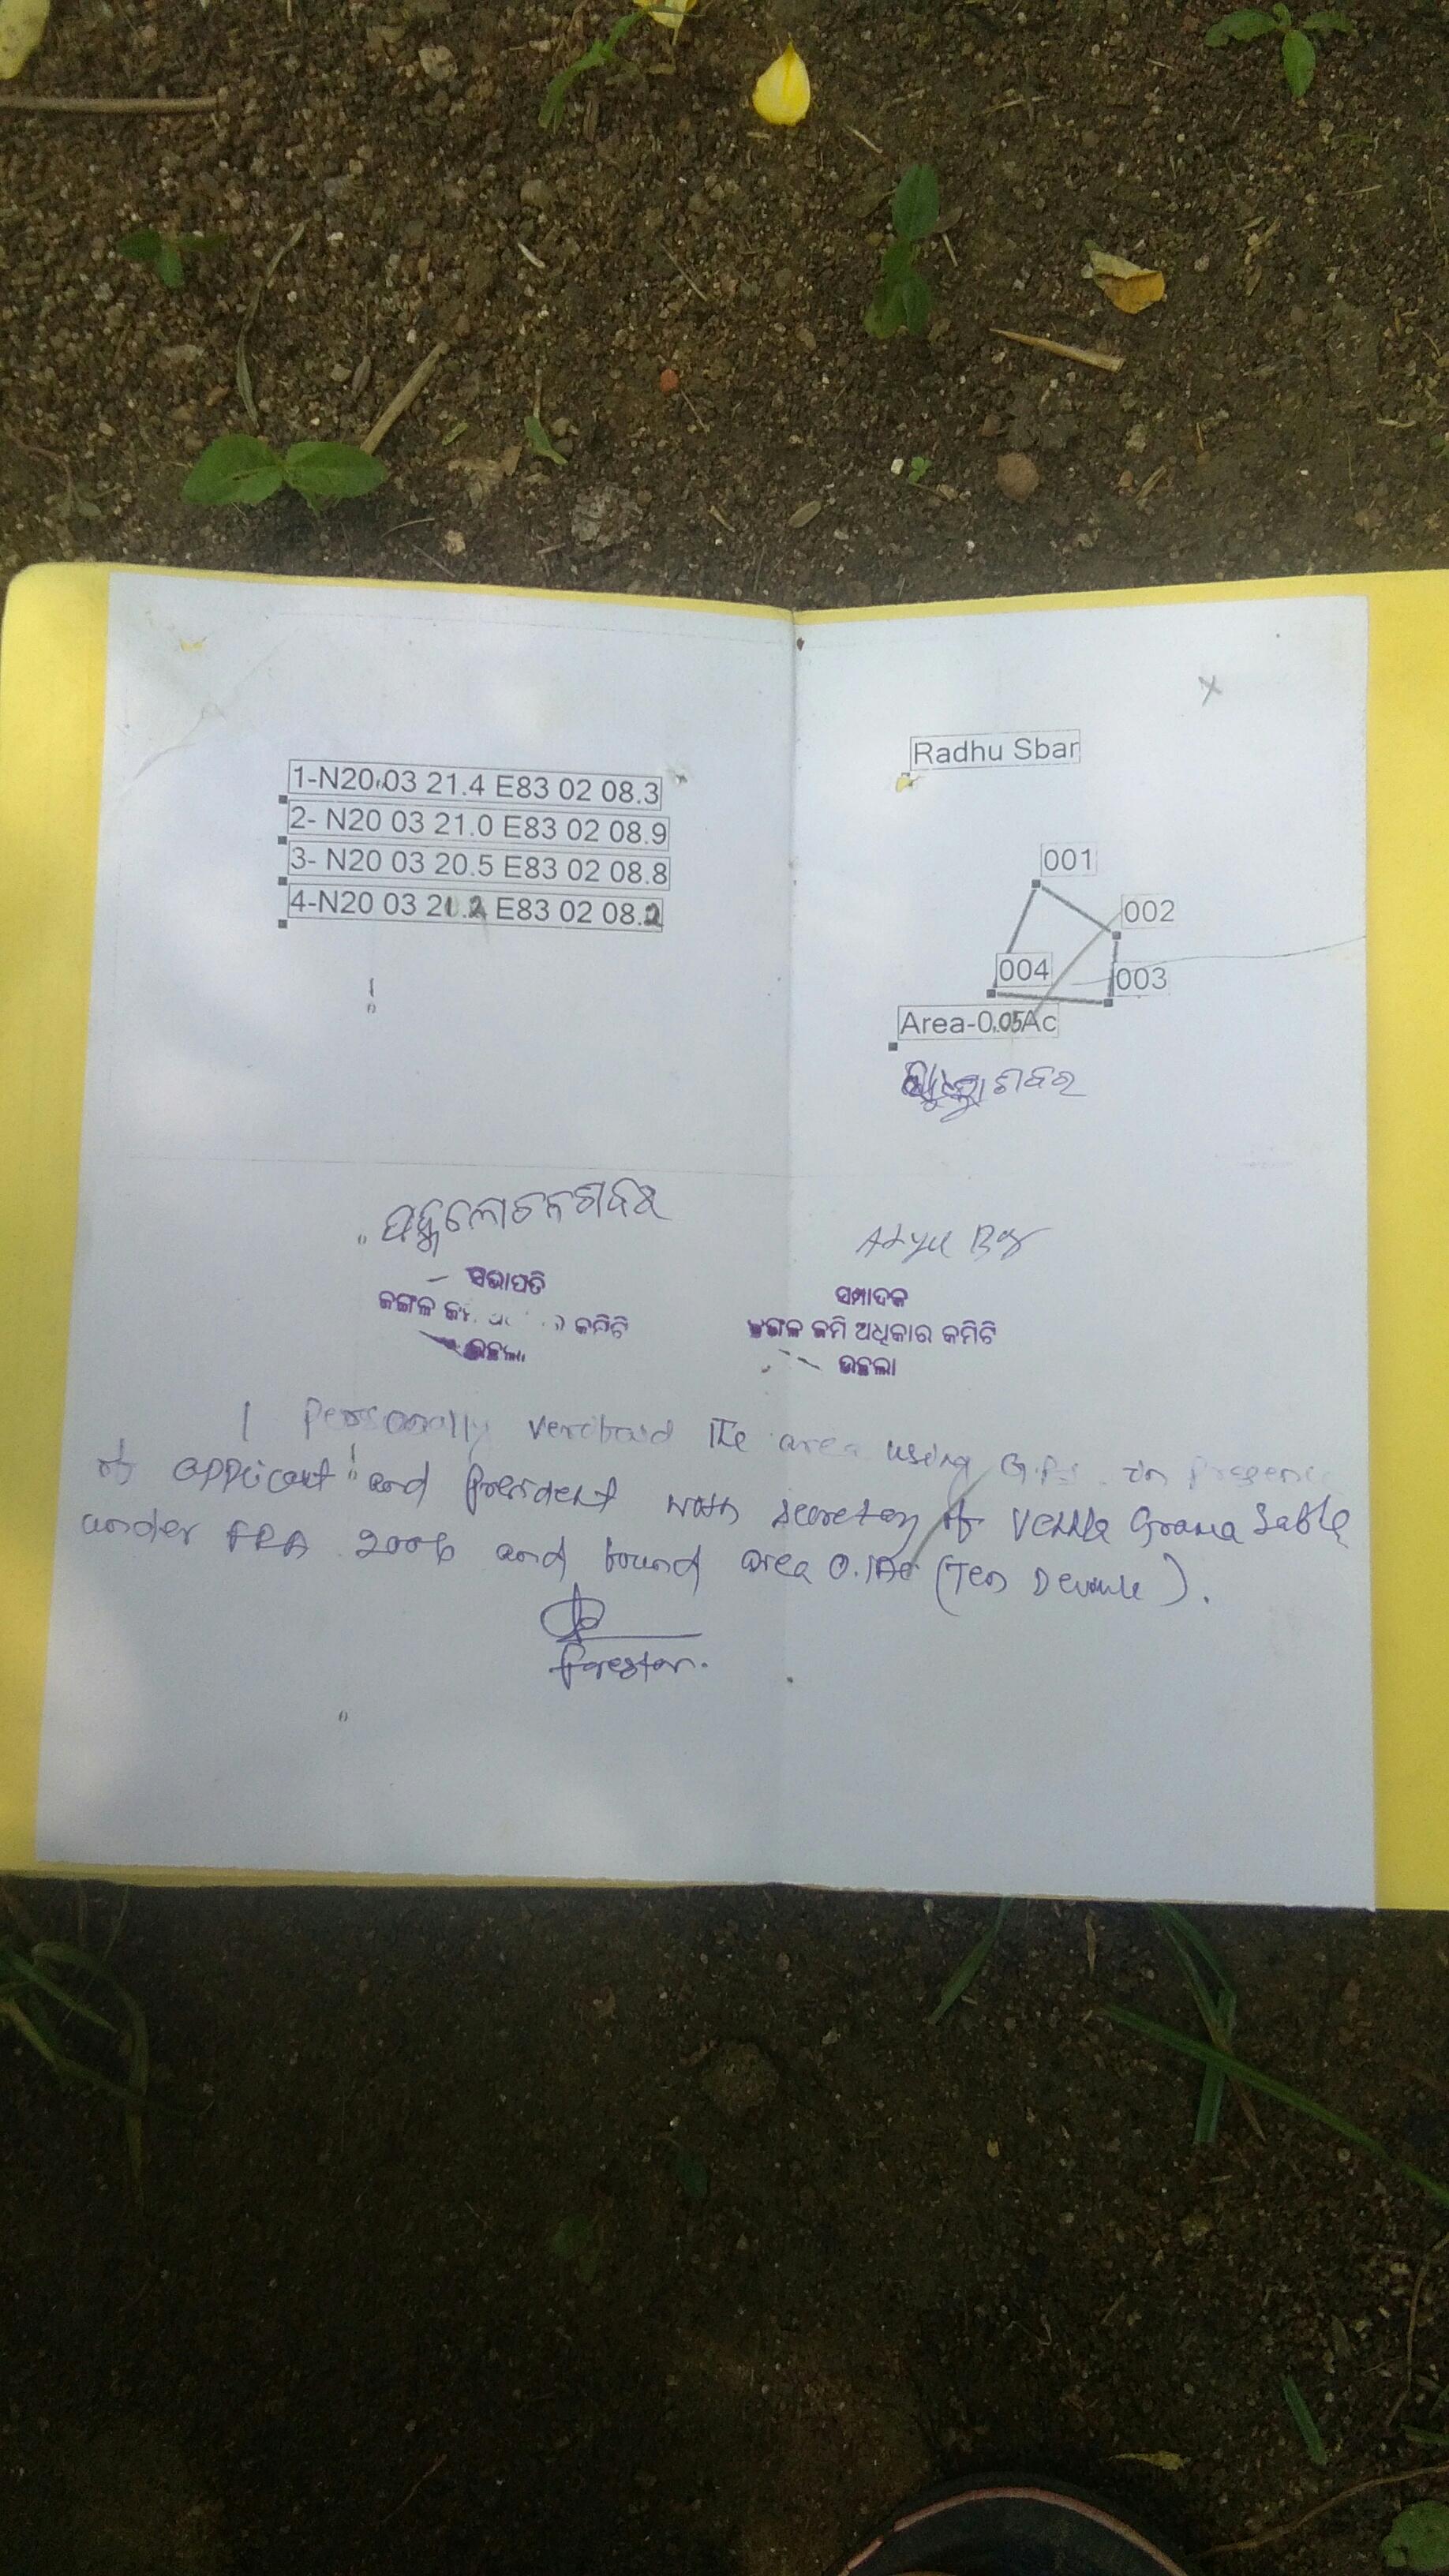 1-N20 03 21.4 E83 02 08.3
2- N20 03 21.0 E83 02 08.9
3- N20 03 20.5 E83 02 08.8
4-N20 03 21.2 E83 02 08.2
Radhu Sbar
001
002
004
003
Area-0.05Ac
ଶବର
ପଦ୍ମଲୋଚନ ଶବର
ସଭାପତି
ଜଙ୍ଗଲ କମିଟି
ଉଚ୍ଛଲା
ସମ୍ପାଦକ
ଜଙ୍ଗଲ ଜମି ଅଧିକାର କମିଟି
ଉଚ୍ଛଲା
I Personally the area using G.P.S. in
of applicant and President with secretary of Grama
under FRA 2006 and found area 0.1Ac (Ten ).
Forester.